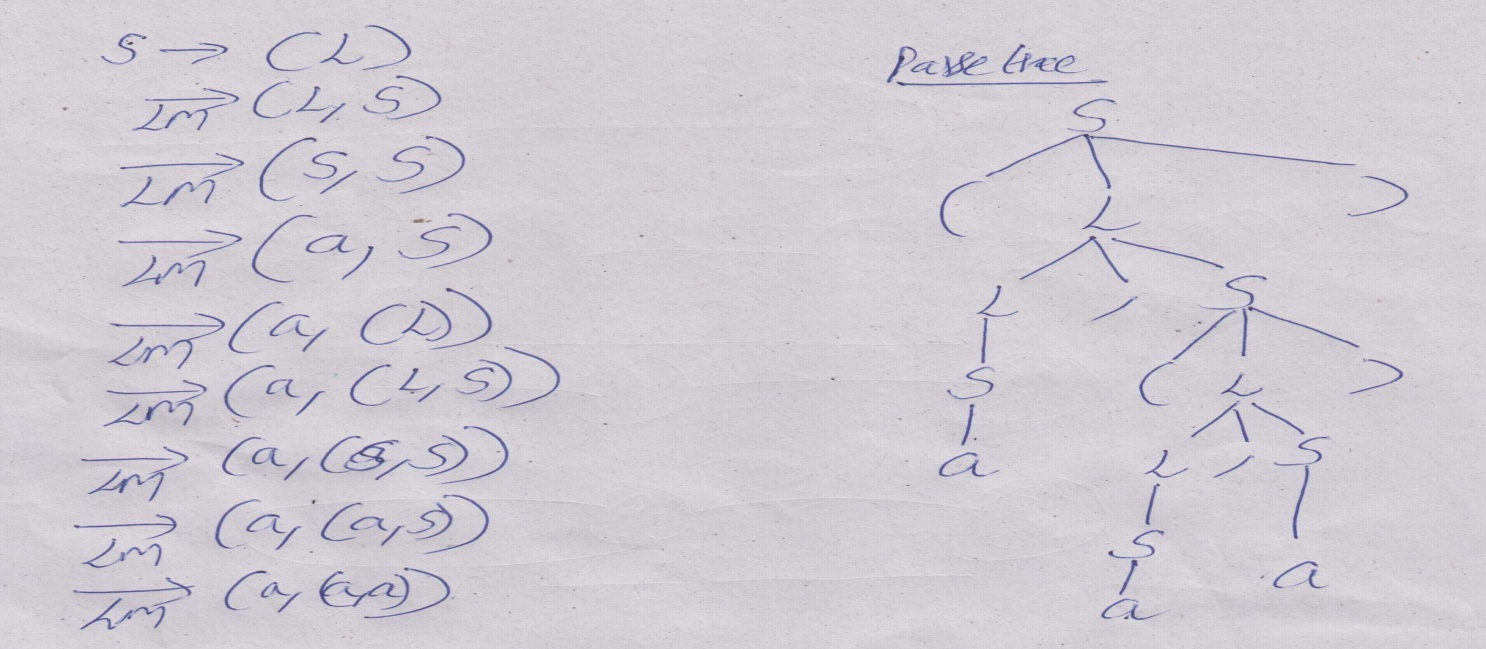 S → (L)
→ LM (L, S)
→ LM (S, S)
→ LM (a, S)
→ LM (a, (L))
→ LM (a, (L, S))
→ LM (a, (S, S))
→ LM (a, (a, S))
→ LM (a, (a, a))
Passe tree
S
( L )
L , S
S ( L )
a L , S
S a
a